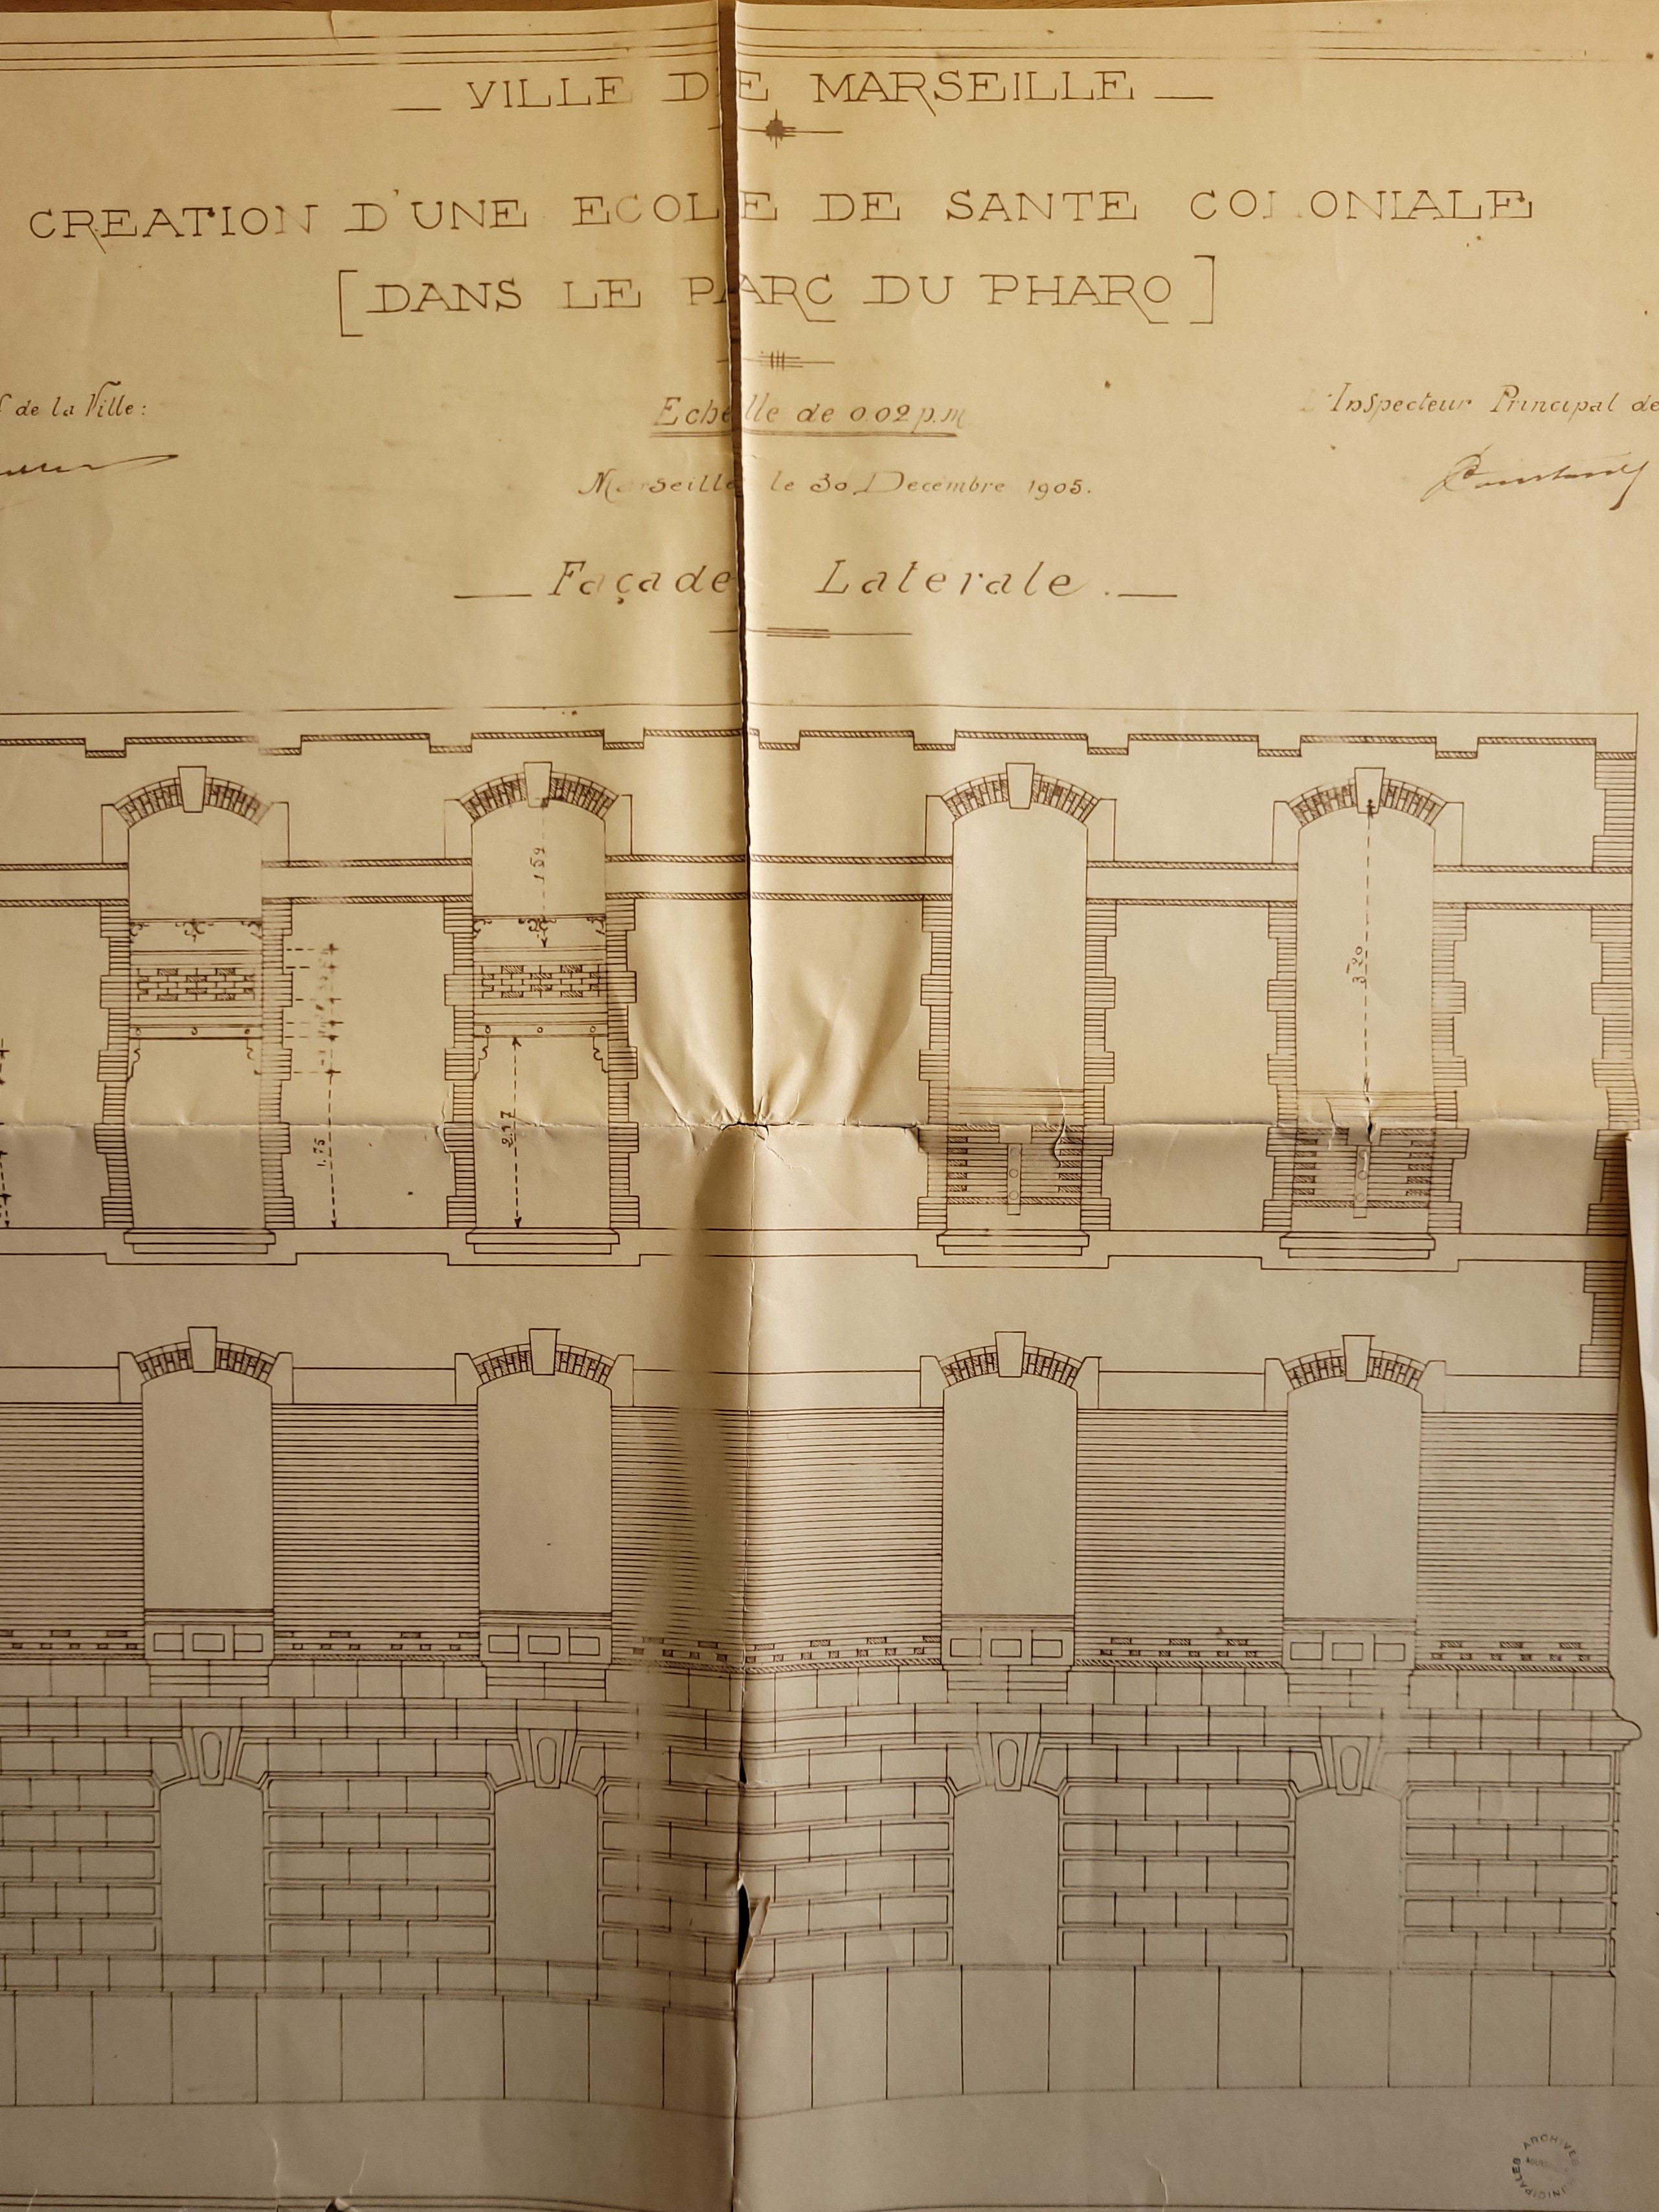 VILLE DE MARSEILLE
CREATION D'UNE ECOLE DE SANTE COLONIALE
[DANS LE PARC DU PHARO]
de la Ville:
Echelle de 0.02 p.m
L'Inspecteur Principal de
Marseille le 30 Decembre 1905.
Façade Laterale.
1.59
3.20
1.75
2.17
ARCHIVES MUNICIPALES